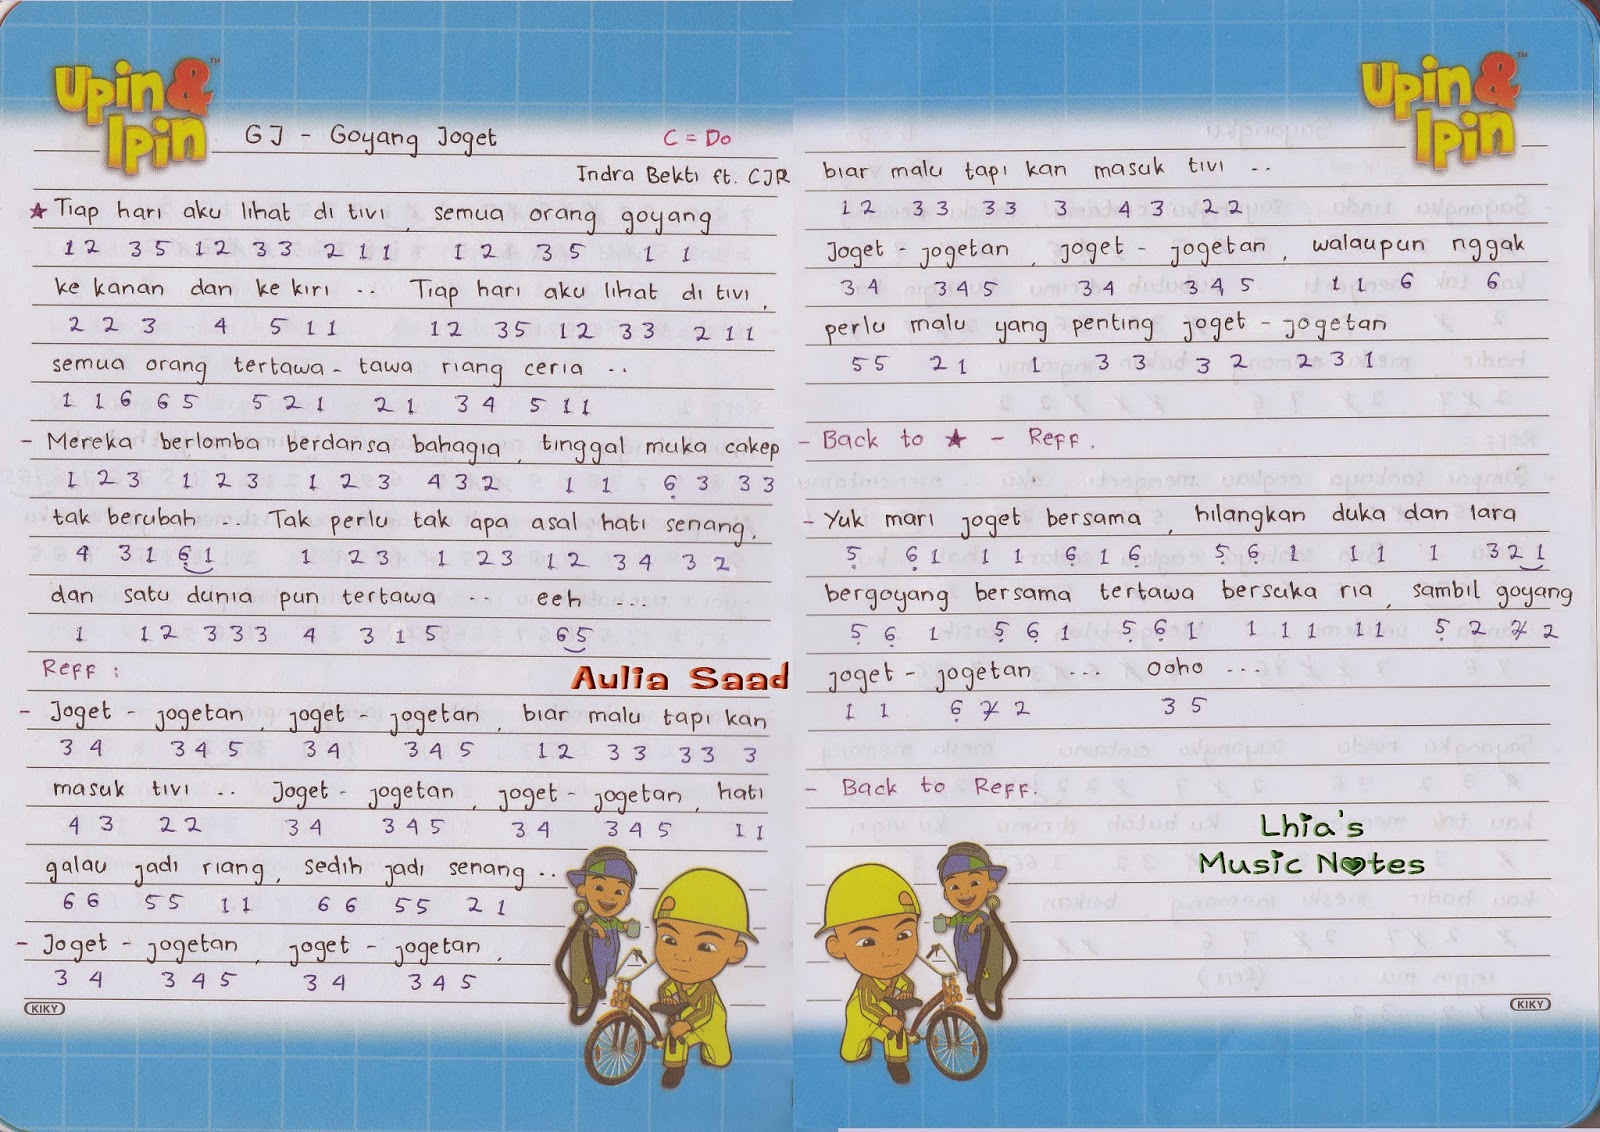 Upin & Ipin™
GJ - Goyang Joget C = Do
Indra Bekti ft. CJR
★ Tiap hari aku lihat di tivi, semua orang goyang
1 2 3 5 1 2 3 3 2 1 1 1 2 3 5 1 1
ke kanan dan ke kiri .. Tiap hari aku lihat di tivi,
2 2 3 4 5 1 1 1 2 3 5 1 2 3 3 2 1 1
semua orang tertawa - tawa riang ceria ..
1 1 6 6 5 5 2 1 2 1 3 4 5 1 1
- Mereka berlomba berdansa bahagia, tinggal muka cakep
1 2 3 1 2 3 1 2 3 4 3 2 1 1 6̣ 3 3 3
tak berubah ... Tak perlu tak apa asal hati senang,
4 3 1 6̣ 1 1 2 3 1 2 3 1 2 3 4 3 2
dan satu dunia pun tertawa .. eeh ...
1 1 2 3 3 3 4 3 1 5 6 5
Reff :
Aulia Saad
- Joget - jogetan, joget - jogetan, biar malu tapi kan
3 4 3 4 5 3 4 3 4 5 1 2 3 3 3 3 3
masuk tivi .. Joget - jogetan, joget - jogetan, hati
4 3 2 2 3 4 3 4 5 3 4 3 4 5 1 1
galau jadi riang, sedih jadi senang ..
6 6 5 5 1 1 6 6 5 5 2 1
- Joget - jogetan, joget - jogetan,
3 4 3 4 5 3 4 3 4 5
KIKY
Upin & Ipin™
biar malu tapi kan masuk tivi ..
1 2 3 3 3 3 3 4 3 2 2
Joget - jogetan, joget - jogetan, walaupun nggak
3 4 3 4 5 3 4 3 4 5 1 1 6 6
perlu malu yang penting joget - jogetan
5 5 2 1 1 3 3 3 2 2 3 1
- Back to ★ - Reff.
- Yuk mari joget bersama, hilangkan duka dan lara
5̣ 6̣ 1 1 1 6̣ 1 6̣ 5̣ 6̣ 1 1 1 1 3 2 1
bergoyang bersama tertawa bersuka ria, sambil goyang
5̣ 6̣ 1 5̣ 6̣ 1 5̣ 6̣ 1 1 1 1 1 1 5̣ 2 2̸ 2
joget - jogetan ... Ooho ...
1 1 6̣ 2̸ 2 3 5
- Back to Reff.
Lhia's
Music Notes
KIKY